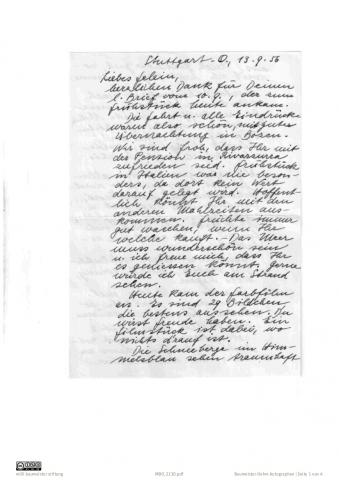 Stuttgart-O, 13.9.56
Liebes
herzlichen Dank für Deinen
l. Brief vom 10.9., der zum
Frühstück heute ankam.
Die Fahrt u. alle Eindrücke
waren also schön, mit guter
Übernachtung in Bozen.
Wir sind froh, dass Ihr mit
der Pension in
zufrieden seid. Frühstück
in Italien war nie beson-
ders, da dort kein Wert
darauf gelegt wird. Hoffent-
lich könnt Ihr mit den
anderen Mahlzeiten aus-
kommen. Früchte immer
gut waschen, wenn Ihr
welche kauft. – Das Meer
muss wunderschön sein
u. ich freue mich, dass Ihr
es geniessen könnt. Gerne
würde ich Euch am Strand
sehen.
Heute kam der Farbfilm
an. Es sind 29 Bildchen,
die bestens aussehen. Du
wirst Freude haben. Ein
Filmstück ist dabei, wo
nichts drauf ist.
Die Schneeberge im Him-
melsblau sehen traumhaft
willi baumeister stiftung
Baumeister-Rehm Autographen | Seite 1 von 4